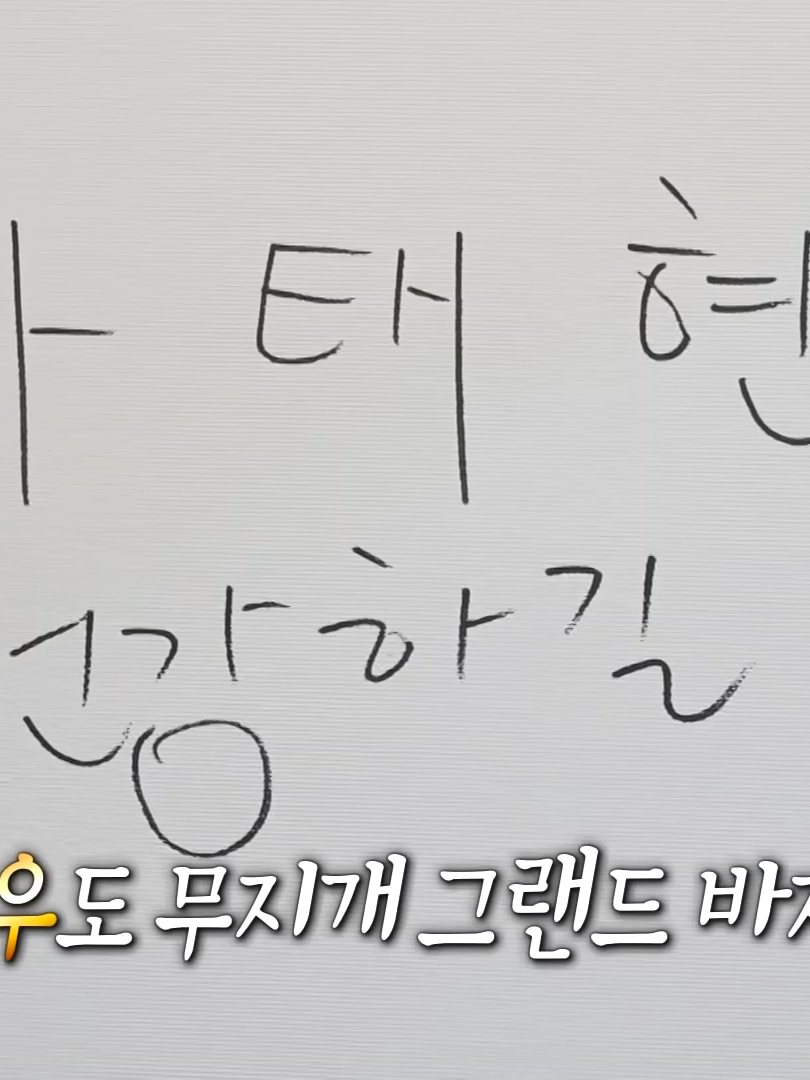 태현
강하길
우도 무지개 그랜드 바